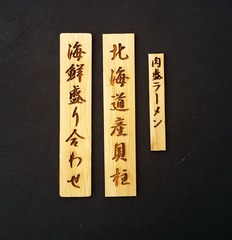 海鮮盛り合わせ
北海道産貝柱
肉盛ラーメン